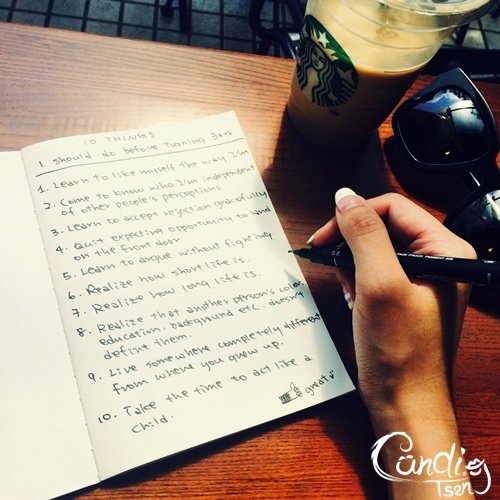 10 THINGS
I should do before turning 30th
1. Learn to like myself the way I'm
2. Come to know who I'm independent
of other people's perceptions.
3. Learn to accept rejection gracefully
4. Quit expecting opportunity to land
on the front door
5. Learn to argue without fighting
6. Realize how short life is.
7. Realize how long life is.
8. Realize that another person's color,
education, background etc. doesn't
define them.
9. Live somewhere completely different
from where you grew up.
10. Take the time to act like a
child.
great
FADE PROOF PIGMENT INK
Candi
Tsen